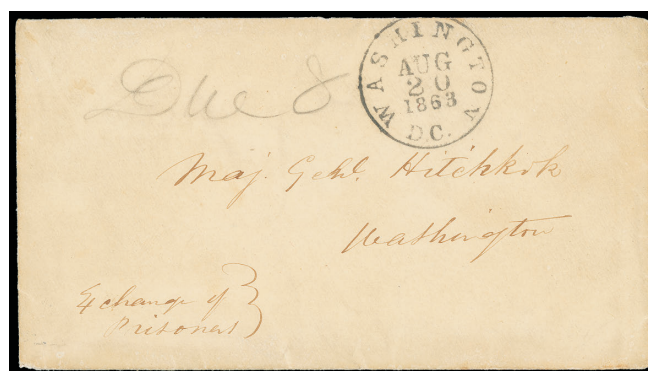 WASHINGTON
AUG
20
1863
D.C.
Due 8
Maj. Genl. Hitchkok
Washington
Exchange of
Prisoners